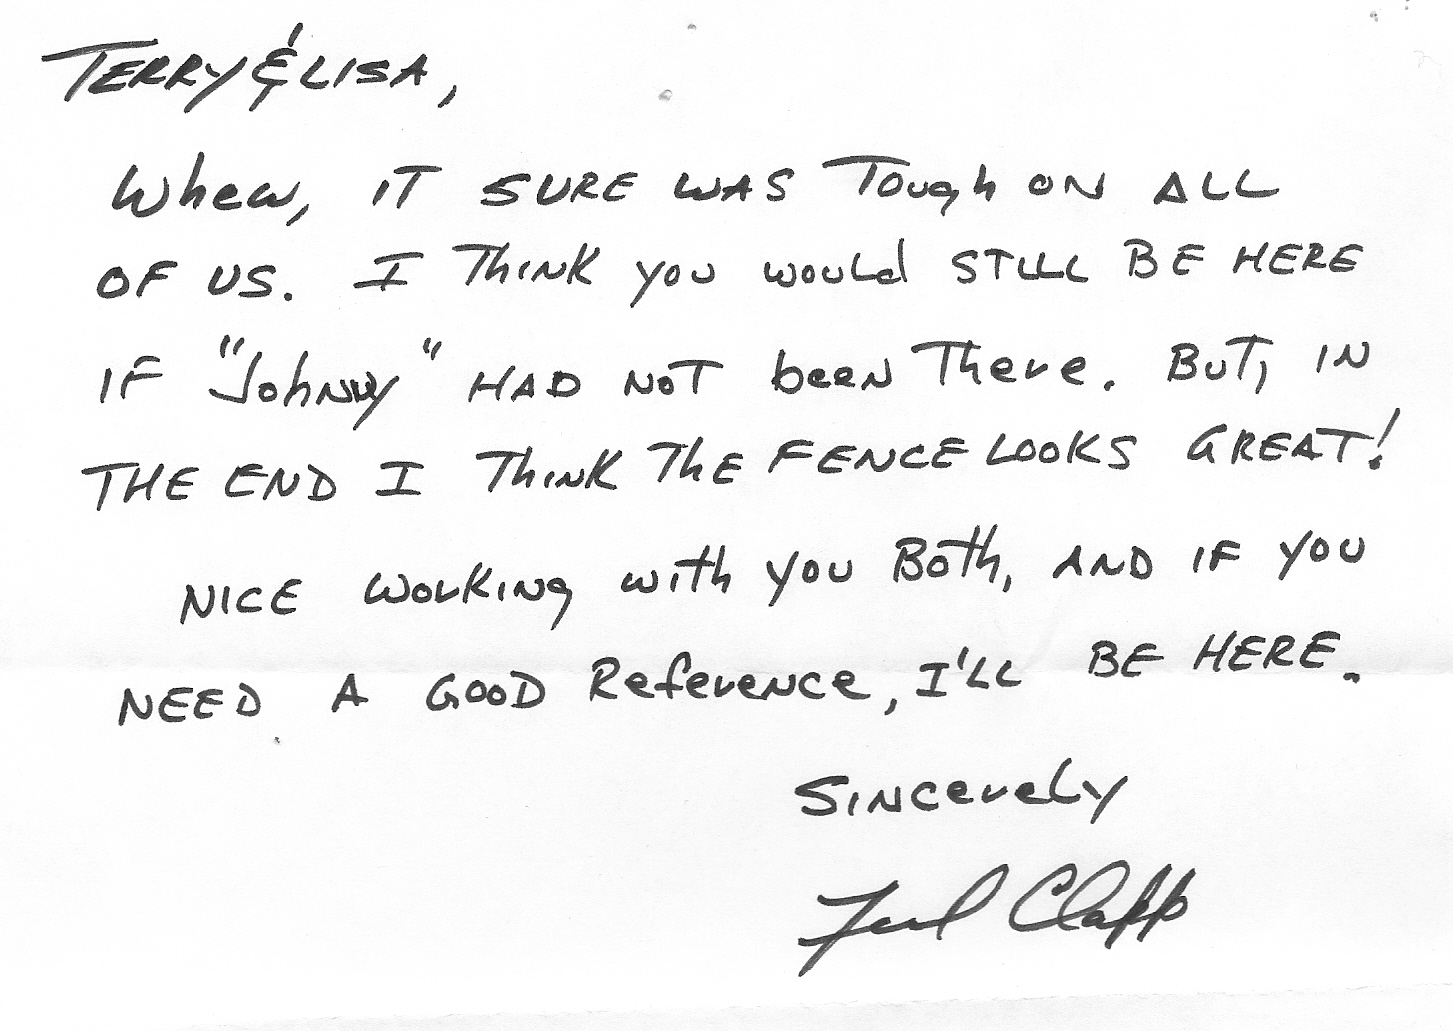 TERRY & LISA,
Whew, IT SURE WAS Tough ON ALL
OF US. I Think you would STILL BE HERE
IF "Johnny" HAD NOT been There. BUT, IN
THE END I Think The FENCE LOOKS GREAT!
NICE Working with you Both, AND IF YOU
NEED A GOOD Reference, I'LL BE HERE.
Sincerely
Clapp